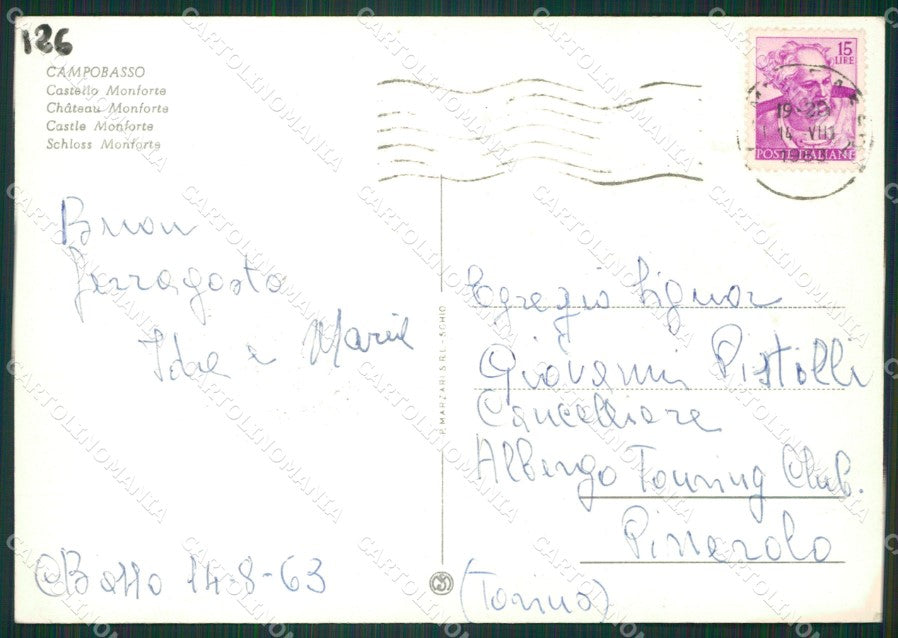 186
CAMPOBASSO
Castello Monforte
Château Monforte
Castle Monforte
Schloss Monforte
15
LIRE
POSTE ITALIANE
19-20
14.VIII
Buon
Ferragosto
Ida e Maria
C Basso 14-8-63
P. MARZARI S.R.L. - SCHIO
Egregio Signor
Giovanni Pistilli
Cancelliere
Albergo Touring Club.
Pinerolo
(Torino)
CARTOLINOMANIA